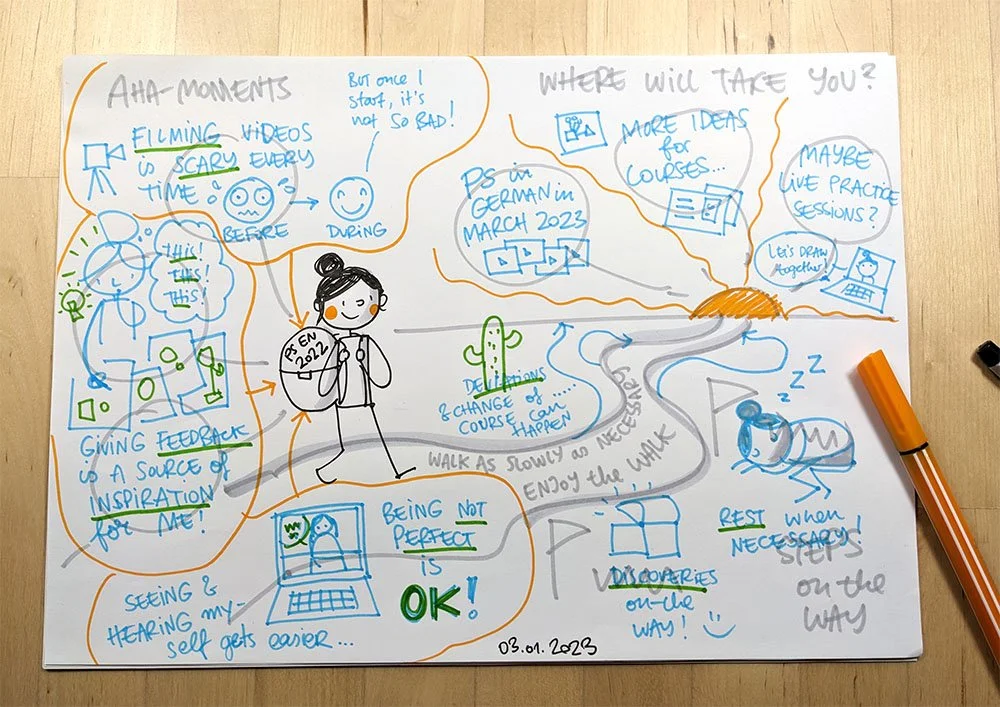 AHA-MOMENTS
FILMING VIDEOS
is SCARY EVERY
TIME!
But once I
start, it's
not SO BAD!
BEFORE
DURING
THIS!
THIS!
THIS!
GIVING FEEDBACK
is A SOURCE of
INSPIRATION
for ME!
SEEING &
HEARING my-
self gets easier...
BEING NOT
PERFECT
is
OK!
PS EN
2022
WHERE WILL TAKE YOU?
PS in
GERMAN in
MARCH 2023
MORE IDEAS
for
COURSES...
MAYBE
LIVE PRACTICE
SESSIONS?
Let's DRAW
together!
DEVIATIONS
& CHANGE of ...
COURSE can
HAPPEN
WALK AS SLOWLY as NECESSARY
ENJOY the WALK
z Z Z
REST when
NECESSARY!
STEPS
on the
WAY
DISCOVERIES
on-the
WAY!
03.01.2023